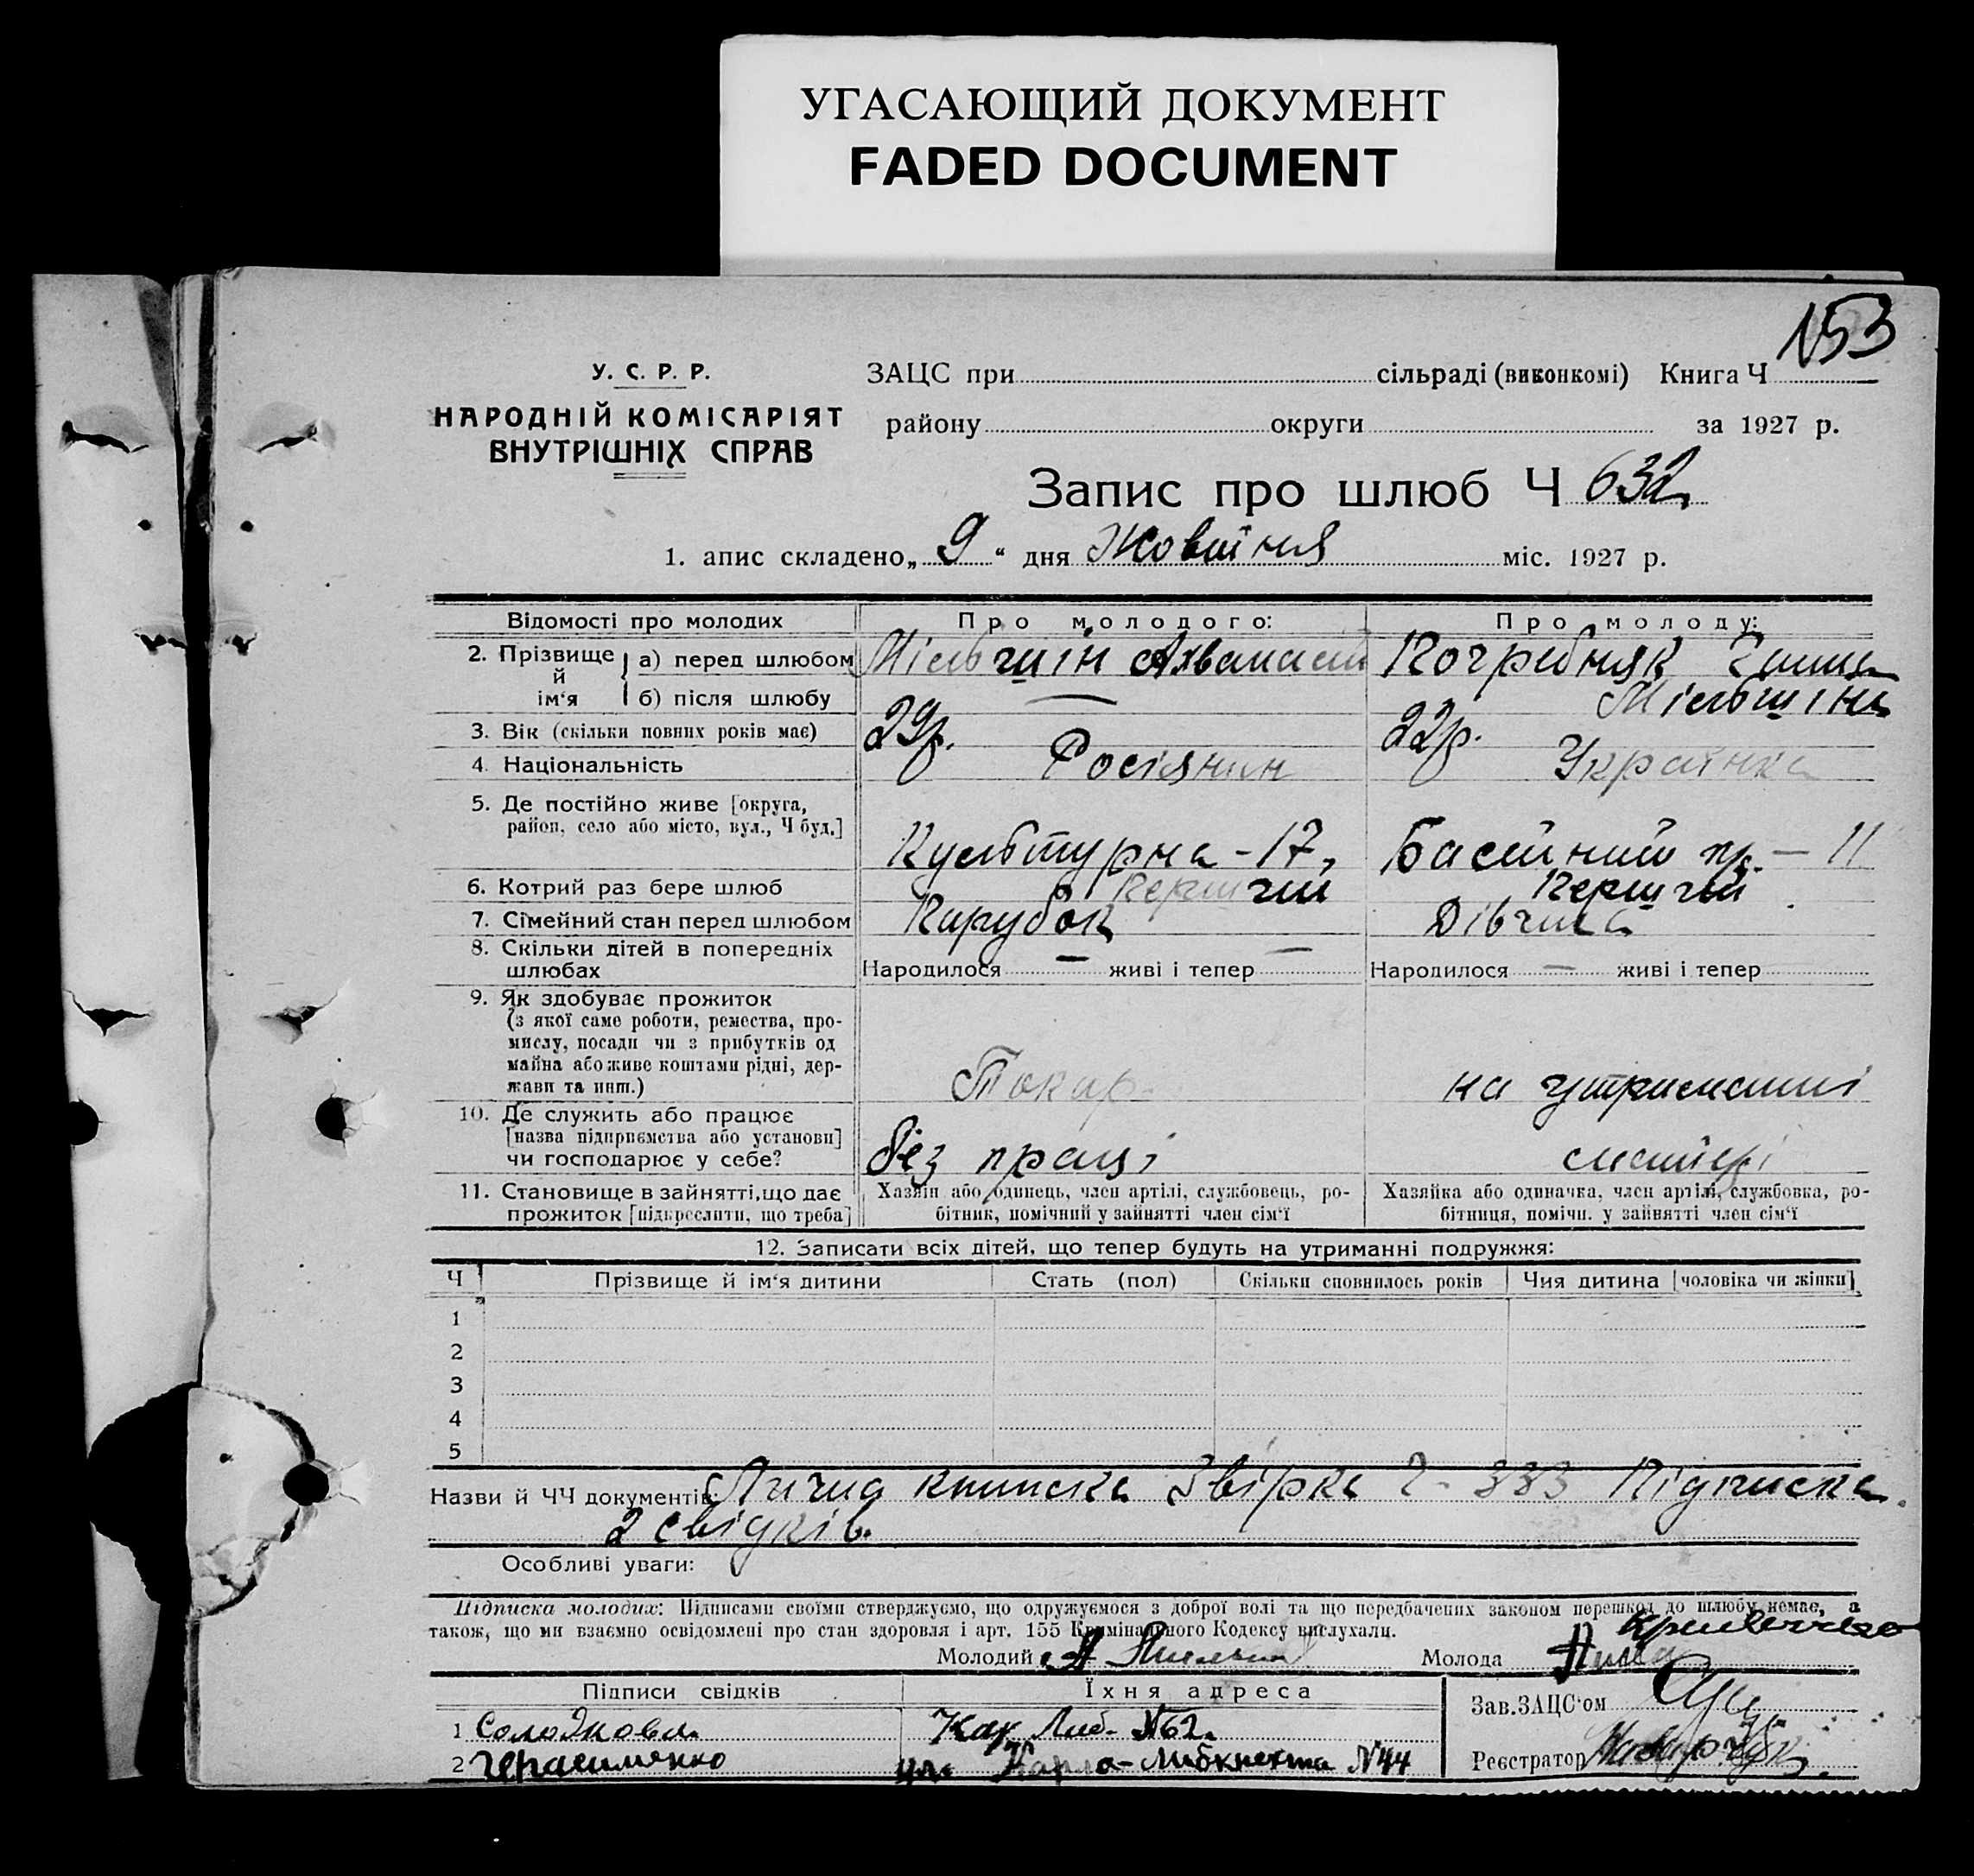 УГАСАЮЩИЙ ДОКУМЕНТ
FADED DOCUMENT
153
У. С. Р. Р.
НАРОДНІЙ КОМІСАРІЯТ
ВНУТРІШНІХ СПРАВ
ЗАЦС при сільраді (виконкомі) Книга Ч
району округи за 1927 р.
Запис про шлюб Ч 632
1. апис складено „ 9 “ дня Жовтня міс. 1927 р.
Відомості про молодих Про молодого: Про молоду:
2. Прізвище й ім‘я а) перед шлюбом Погребняк
б) після шлюбу
3. Вік (скільки повних років має) 29р. 22р.
4. Національність Росіянин Українка
5. Де постійно живе [округа,
район, село або місто, вул., Ч буд.] Культурна - 17, Басейний пр. — 11
6. Котрий раз бере шлюб Перший Перший
7. Сімейний стан перед шлюбом Парубок Дівчина
8. Скільки дітей в попередніх
шлюбах Народилося — живі і тепер — Народилося — живі і тепер
9. Як здобуває прожиток
(з якої саме роботи, ремества, про-
мислу, посади чи з прибутків од
майна або живе коштами рідні, дер-
жави та инш.) Токар на утриманні
10. Де служить або працює
[назва підприємства або установи]
чи господарює у себе? без праці матері
11. Становище в зайнятті, що дає
прожиток [підкреслити, що треба]
Хазяїн або одинець, член артілі, службовець, ро-
бітник, помічний у зайнятті член сім‘ї
Хазяйка або одиначка, член артілі, службовка, ро-
бітниця, помічн. у зайнятті член сім‘ї
12. Записати всіх дітей, що тепер будуть на утриманні подружжя:
Ч Прізвище й ім‘я дитини Стать (пол) Скільки сповнилось років Чия дитина [чоловіка чи жінки]
1
2
3
4
5
Назви й ЧЧ документів: Лична книжка Звірка 2 - 333 Підписка
2 свідків.
Особливі уваги:
Підписка молодих: Підписами своїми стверджуємо, що одружуємося з доброї волі та що передбачених законом перешкод до шлюбу немає, а
також, що ми взаємно освідомлені про стан здоровля і арт. 155 Кримінального Кодексу вислухали.
Молодий Молода
Підписи свідків Їхня адреса
Зав. ЗАЦС‘ом
1 Солодкова Кар. Либ. №62
2 Герасименко ул. Карла-Либкнехта №44
Реєстратор